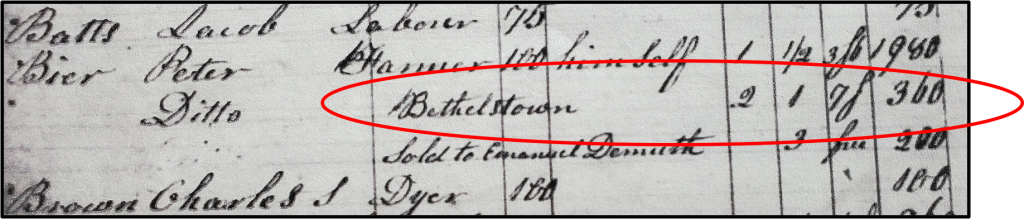 Batts Jacob Labour 75 75
Bier Peter Tanner 100 himself 1 1/2 3f6 1980
Ditto Bethelstown 2 1 7f 360
Sold to Emanuel Demuth 3 200
Brown Charles S Dyer 100 100